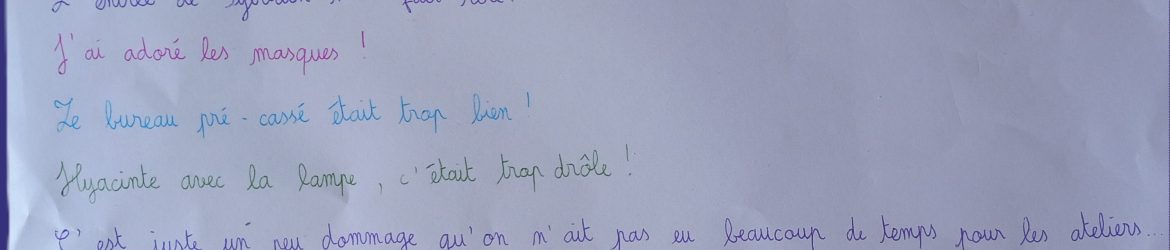 de
J'ai adoré les masques !
Le bureau pré-cassé était trop bien !
Hyacinte avec la lampe, c'était trop drôle !
C'est juste un peu dommage qu'on n'ait pas eu beaucoup de temps pour les ateliers...